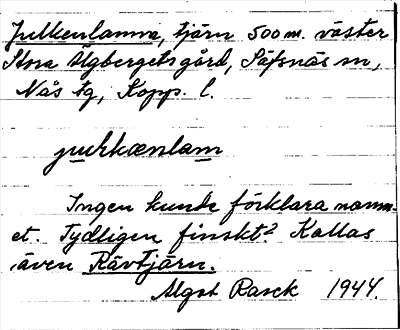 Julkenlamma, tjärn 500 m. väster
Stora Ulgbergets gård, Säfsnäs sn,
Nås tg, Kopp. l.
julkkenlam
Ingen kunde förklara namn-
et. Tydligen finskt? Kallas
även Rävtjärn.
Algot Rasck 1944.